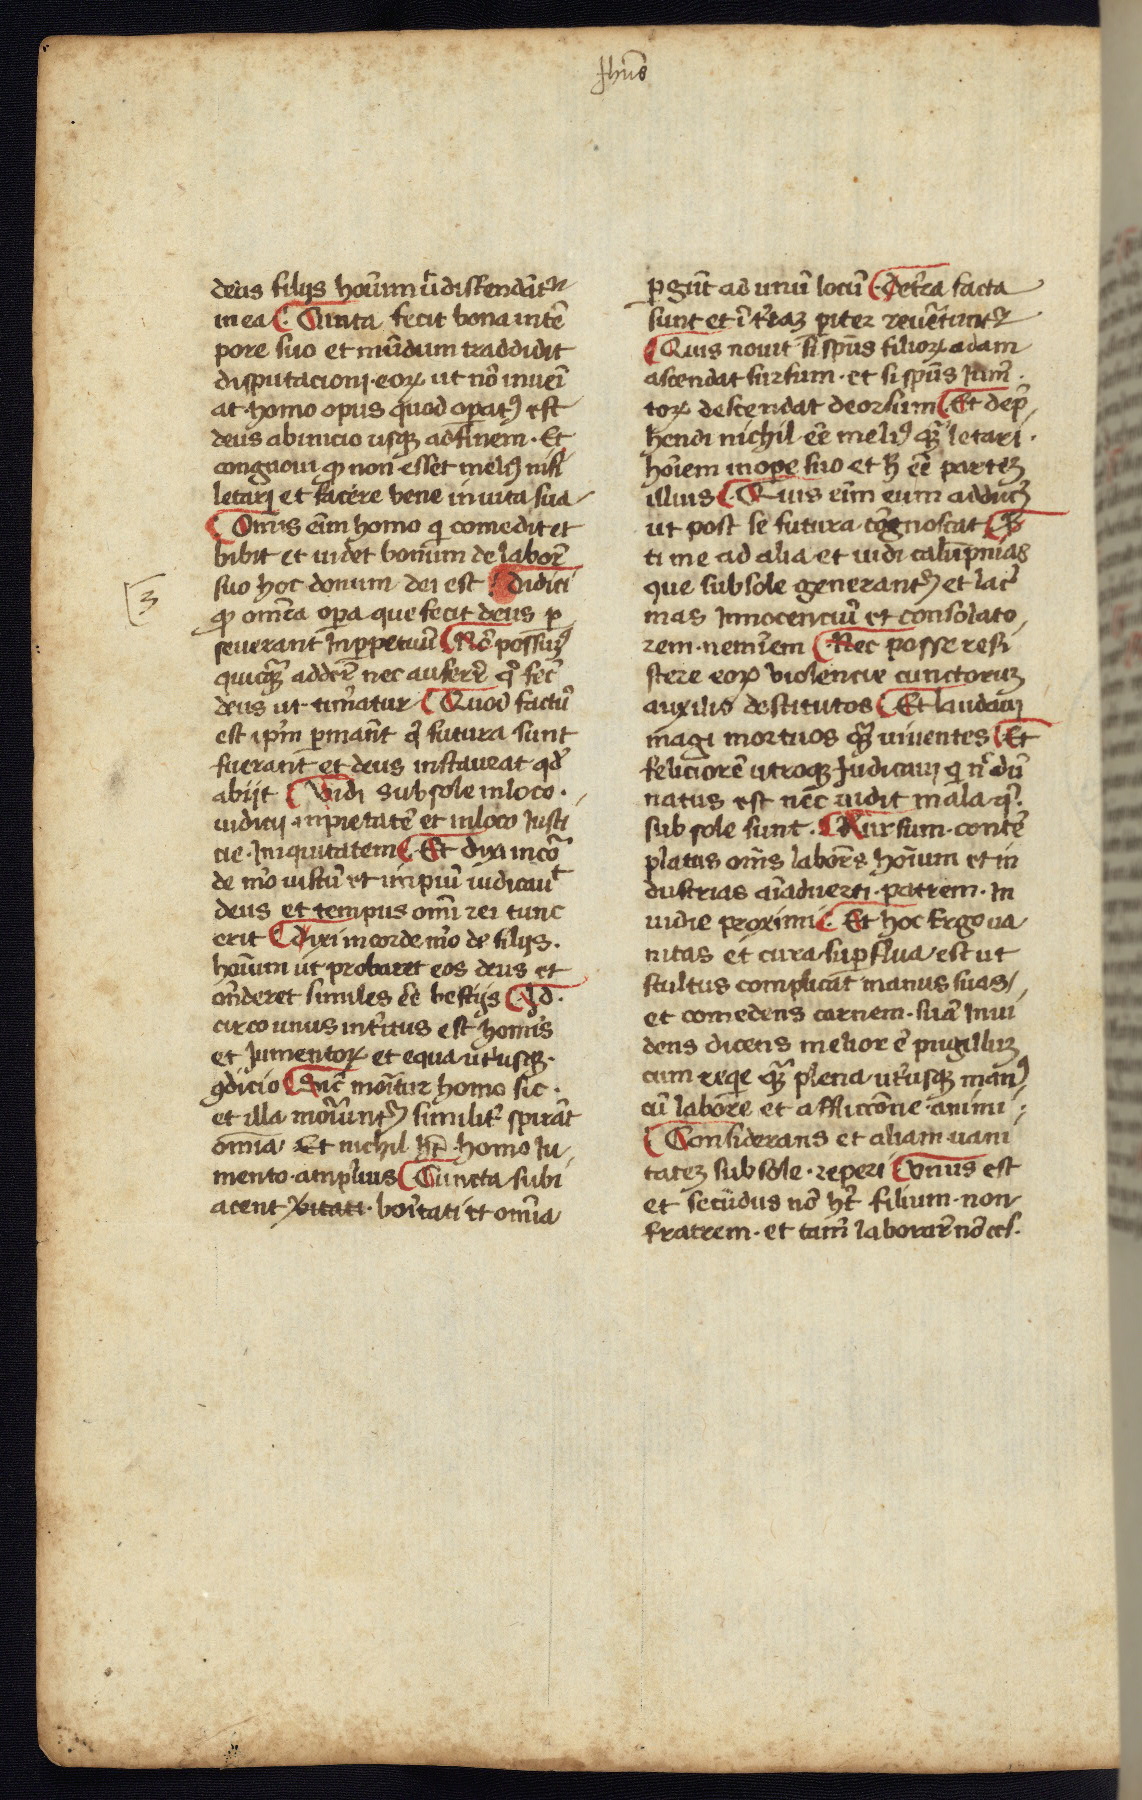 Jhũs
deus filijs hom̄ııum ut distendāt᷑
in ea Cunta fecit bona in tē
pore suo et mūdum traddidit
disputacioni eorꝝ ut nō inueī
at homo opus quod opatꝰ est
deus ab inicio usqꝫ ad finem · Et
congnoui ꝙ non esset melıꝰ nisi
letari et facere bene in uita sua
Omis eīm homo qi comedit et
bibit et uidet bonum de laborē
suo hoc donum dei est Didici
3
ꝙ om̄ia opa que fecit deus ꝑ
seuerant In ꝑpetuū Nō possumꝰ
quicqꝫ addeē nec auferē q̄ fec̄
deus ut tim̄atur Quod factū
est ip̄m ꝑmanēt q̄ futura sunt
fuerant et deus instaurat qd̓
abijt Vidi sub sole in loco ·
iudicij inpietatē et in loco Justi
cie · Iniquitatem Et dixi in cor̄
de m̄o iustū et impiū iudicaut
deus et tempus om̄i rei tunc
erit Dixi in corde m̄o de filijs ·
hom̄um ut probaret eos deus et
on̄deret similes eē bestijs Id ·
circo unus int̄itus est homīs
et Jumentorꝝ et equa ut̄usqꝫ ·
ꝯdicio Sic moit̄ur homo sic ·
et illa moriunt᷑ similit̄ spirāt
omnia · Et nichil ht̄ homo Ju
mento amplius Cuncta subi
acent vıtati · bonitati et om̄ia
ꝑgūt ad unū locū De t̄ra facta
sunt et ī t̄rāꝫ ꝑiter reuētunt᷑
Quis nouit si spūs filiorꝝ adam
ascendat sursum · et si spūs Jum̄ ·
torꝝ descendat deorsum Et dep̄
hendi nichil eē melıꝰ qꝫ letari ·
hoīem in ope suo et h̄ eē partē
illius Quis eīm eum adducꝫ
ut post se futura cōgnoscat V̓
ti me ad alia et uidi calūpnias
que sub sole generant᷑ et lac̄
mas Innocenciū et consolato
rem · nemīem Nec posse resi
stere eorꝝ violencie cunctorum
auxilio destitutos Et laudaui
magi mortuos qꝫ uiuentes Et
feliciorē utroqꝫ Judicaui qi n̄ dū
natus est nec uidit mala q̄ ·
sub sole sunt · Rursum · contē
platus om̄s laborēs hoīum et in
dustrias aīaduerti · patrem · In
uidie proximi Et hoc Ergo ua
nitas et cura supflua est ut
stultus complicāt manus suas
et comedens carnem · suā Inui
dens dicens melior ē pugillus
cum reqe qꝫ plena ut̄usqꝫ manꝰ
cū labore et afficcōnie animi ·
Considerans et aliam uani
tatē sub sole · reperi Vnus est
et secūdus nō ht̄ filium · non
fratrem · et tam̄ laborarē nō ces ·